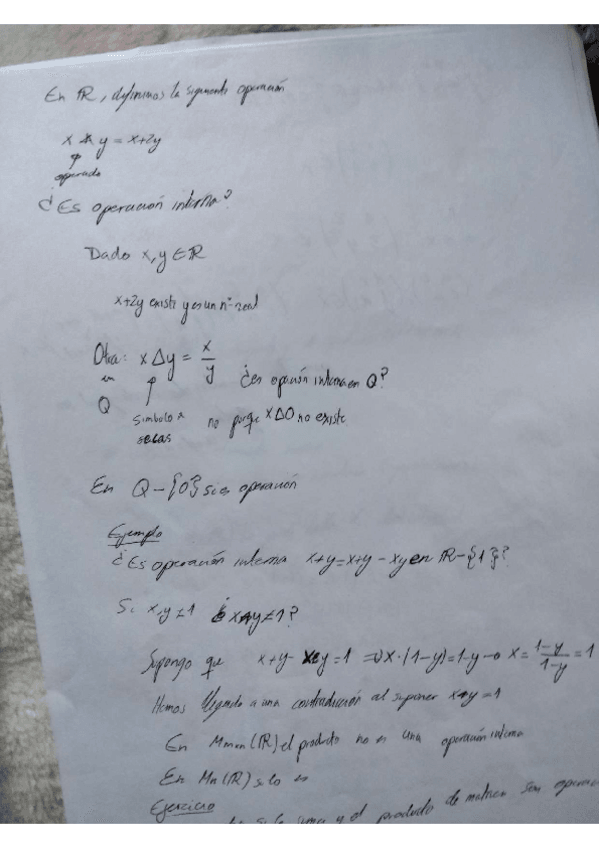 En ℝ, definimos la siguiente operación
x * y = x+2y
operado
¿Es operación interna?
Dado x, y ∈ ℝ
x+2y existe y es un nº real
Otra: x Δ y = x/y ¿es opración interna en Q?
en
Q
Símbolo a
secas
no porque xΔ0 no existe
En Q - {0} si es operación
Ejemplo
¿Es operación interna x*y = x+y - xy en ℝ - {1}?
Si x,y ≠ 1 ¿x*y ≠ 1?
Supongo que x+y - xy = 1 ⇒ x·(1-y) = 1-y → x = (1-y)/(1-y) = 1
Hemos llegado a una contradicción al suponer x*y = 1
En Mmxn(ℝ) el producto no es una operación interna
En Mn(ℝ) si lo es
Ejercicio
si la suma y el producto de matrices son